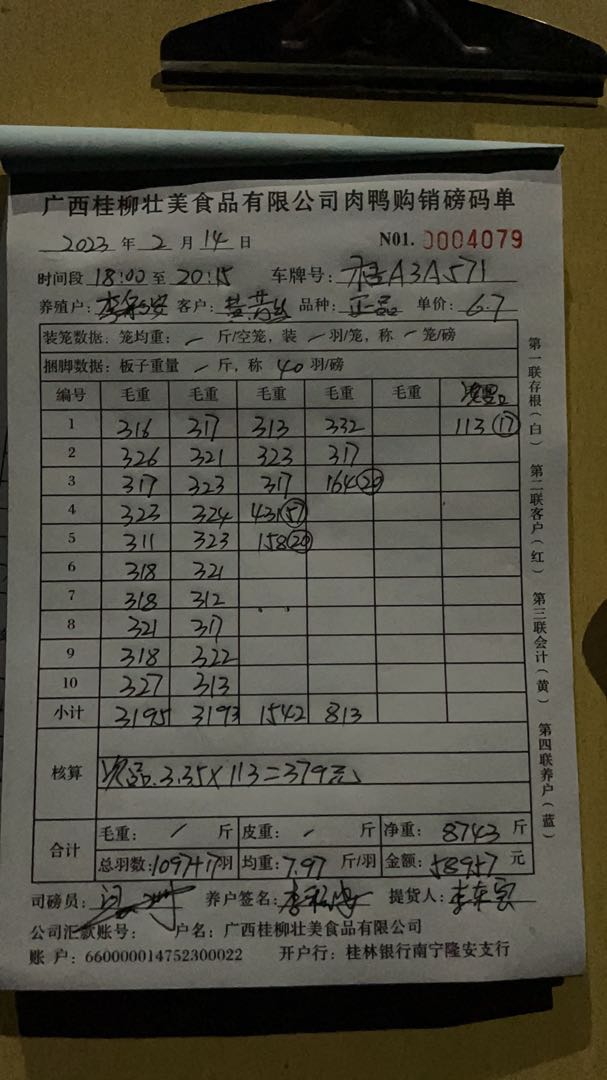 广西桂柳壮美食品有限公司肉鸭购销磅码单
2023 年 2 月 14 日 N01. 0004079
时间段 18:00 至 20:15 车牌号: 桂A3A571
养殖户: 客户: 品种: 正品 单价: 6.7
装笼数据: 笼均重: / 斤/空笼, 装 / 羽/笼, 称 / 笼/磅
捆脚数据: 板子重量 / 斤, 称 40 羽/磅
编号 毛重 毛重 毛重 毛重 毛重
1 316 317 313 332 113 (17)
2 326 321 323 317
3 317 323 317 164 (20)
4 323 324 431 (57)
5 311 323 158 (20)
6 318 321
7 318 312
8 321 317
9 318 322
10 327 313
小计 3195 3193 1542 813
核算 次品.3.35×113=379元
合计 毛重: / 斤 皮重: / 斤 净重: 8743 斤
总羽数: 1097+17羽 均重: 7.97 斤/羽 金额: 58957 元
司磅员: 养户签名: 提货人:
公司汇款账号: 户名: 广西桂柳壮美食品有限公司
账 户: 660000014752300022 开户行: 桂林银行南宁隆安支行
第一联存根(白) 第二联客户(红) 第三联会计(黄) 第四联养户(蓝)